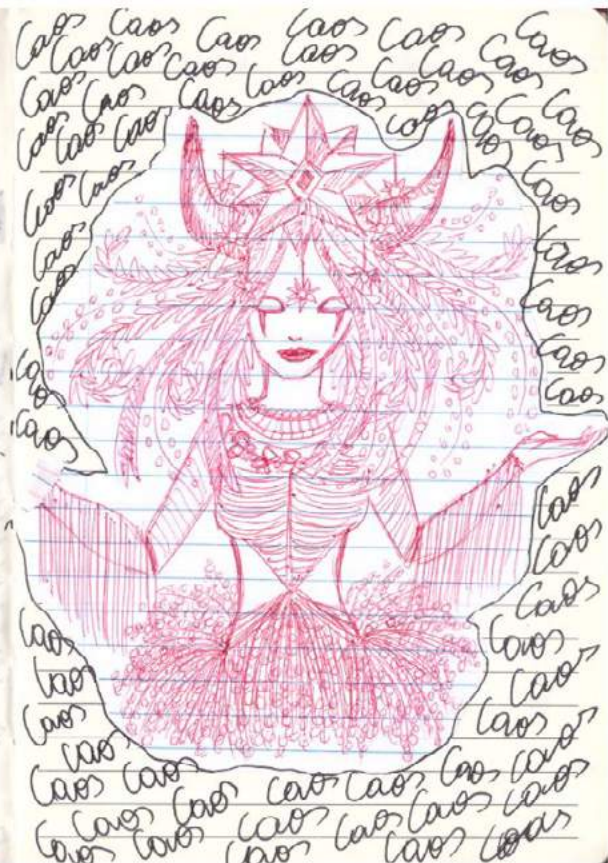 Caos Caos Caos Caos Caos Caos
Caos Caos Caos Caos Caos Caos Caos
Caos Caos Caos Caos Caos Caos Caos
Caos Caos Caos Caos Caos Caos Caos
Caos Caos Caos
Caos Caos
Caos Caos
Caos Caos
Caos
Caos
Caos
Caos
Caos
Caos Caos
Caos Caos
Caos Caos
Caos Caos
Caos Caos Caos Caos Caos
Caos Caos Caos Caos Caos Caos
Caos Caos Caos Caos Caos Caos